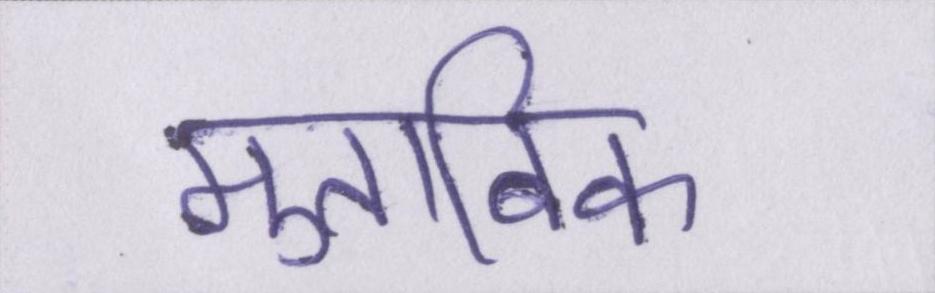 मुताबिक